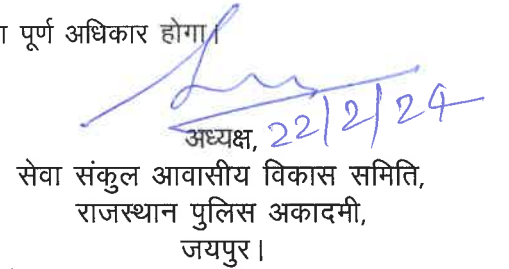 ा पूर्ण अधिकार होगा।
अध्यक्ष, 22/2/24
सेवा संकुल आवासीय विकास समिति,
राजस्थान पुलिस अकादमी,
जयपुर।